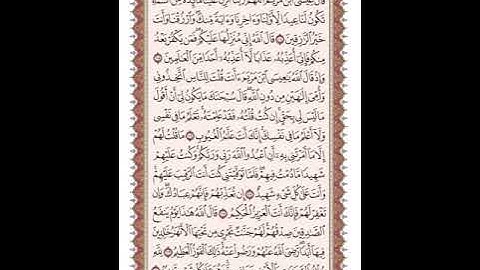 قَالَ عِيسَى ٱبْنُ مَرْيَمَ ٱللَّهُمَّ رَبَّنَآ أَنزِلْ عَلَيْنَا مَآئِدَةً مِّنَ ٱلسَّمَآءِ
تَكُونُ لَنَا عِيدًا لِّأَوَّلِنَا وَءَاخِرِنَا وَءَايَةً مِّنكَ وَٱرْزُقْنَا وَأَنتَ
خَيْرُ ٱلرَّٰزِقِينَ ١١٤ قَالَ ٱللَّهُ إِنِّي مُنَزِّلُهَا عَلَيْكُمْ فَمَن يَكْفُرْ بَعْدُ
مِنكُمْ فَإِنِّيٓ أُعَذِّبُهُۥ عَذَابًا لَّآ أُعَذِّبُهُۥٓ أَحَدًا مِّنَ ٱلْعَٰلَمِينَ ١١٥
وَإِذْ قَالَ ٱللَّهُ يَٰعِيسَى ٱبْنَ مَرْيَمَ ءَأَنتَ قُلْتَ لِلنَّاسِ ٱتَّخِذُونِي
وَأُمِّيَ إِلَٰهَيْنِ مِن دُونِ ٱللَّهِ قَالَ سُبْحَٰنَكَ مَا يَكُونُ لِيٓ أَنْ أَقُولَ
مَا لَيْسَ لِي بِحَقٍّ إِن كُنتُ قُلْتُهُۥ فَقَدْ عَلِمْتَهُۥ تَعْلَمُ مَا فِي نَفْسِي
وَلَآ أَعْلَمُ مَا فِي نَفْسِكَ إِنَّكَ أَنتَ عَلَّٰمُ ٱلْغُيُوبِ ١١٦ مَا قُلْتُ لَهُمْ
إِلَّا مَآ أَمَرْتَنِي بِهِۦٓ أَنِ ٱعْبُدُوا۟ ٱللَّهَ رَبِّي وَرَبَّكُمْ وَكُنتُ عَلَيْهِمْ
شَهِيدًا مَّا دُمْتُ فِيهِمْ فَلَمَّا تَوَفَّيْتَنِي كُنتَ أَنتَ ٱلرَّقِيبَ عَلَيْهِمْ
وَأَنتَ عَلَىٰ كُلِّ شَيْءٍ شَهِيدٌ ١١٧ إِن تُعَذِّبْهُمْ فَإِنَّهُمْ عِبَادُكَ وَإِن
تَغْفِرْ لَهُمْ فَإِنَّكَ أَنتَ ٱلْعَزِيزُ ٱلْحَكِيمُ ١١٨ قَالَ ٱللَّهُ هَٰذَا يَوْمُ يَنفَعُ
ٱلصَّٰدِقِينَ صِدْقُهُمْ لَهُمْ جَنَّٰتٌ تَجْرِي مِن تَحْتِهَا ٱلْأَنْهَٰرُ خَٰلِدِينَ
فِيهَآ أَبَدًا رَّضِيَ ٱللَّهُ عَنْهُمْ وَرَضُوا۟ عَنْهُ ذَٰلِكَ ٱلْفَوْزُ ٱلْعَظِيمُ ١١٩ لِلَّهِ